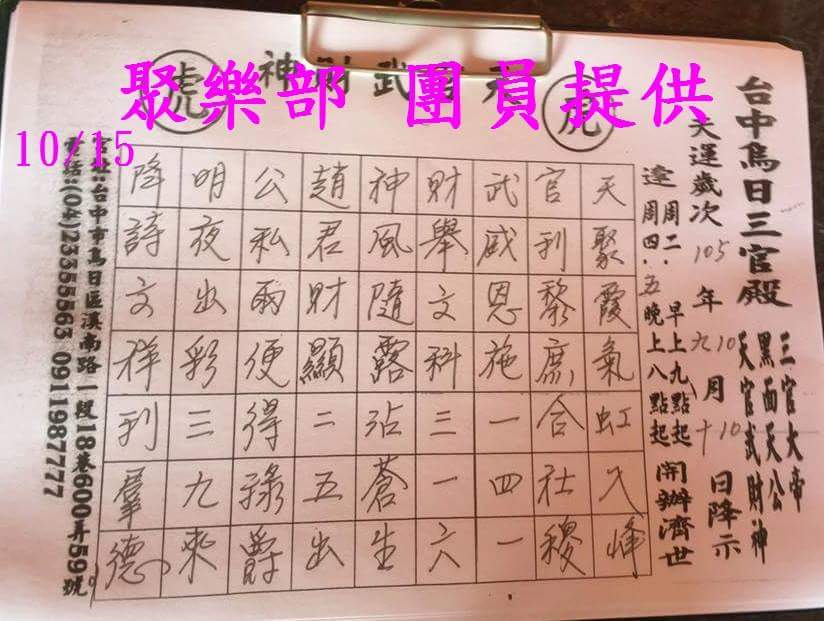 聚樂部 團員提供
10/15
虎 神財武官天 虎
台中烏日三官殿
三官大帝
黑面天公
天官武財神
天運歲次 105 年 九 10 月 十 10 日降示
逢周二、早上九點起
周四、五晚上八點起 開辦濟世
天聚霞氣虹入峰
官利黎庶合社稷
武威恩施一四一
財舉文科三一六
神風隨露沾蒼生
趙君財顯二五出
公私兩便得祿爵
明夜出彩三九來
降詩文祥利羣德
宮址:台中市烏日區溪南路一段18巷600弄59號
電話:(04)23355563 0911987777